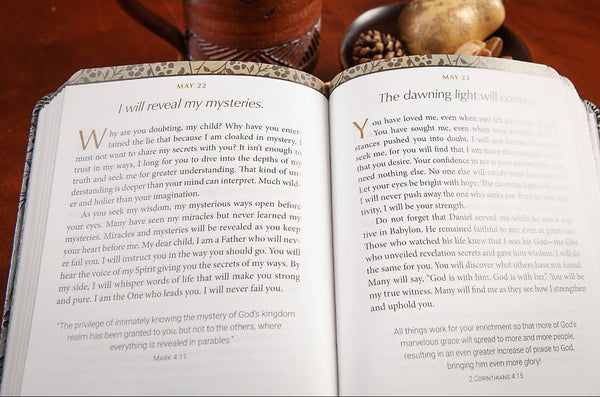 MAY 22
I will reveal my mysteries.
Why are you doubting, my child? Why have you enter-
tained the lie that because I am cloaked in mystery, I
must not want to share my secrets with you? It isn't enough to
trust in my ways, I long for you to dive into the depths of my
truth and seek me for greater understanding. That kind of un-
derstanding is deeper than your mind can interpret. Much wild-
er and holier than your imagination.
As you seek my wisdom, my mysterious ways open before
your eyes. Many have seen my miracles but never learned my
mysteries. Miracles and mysteries will be revealed as you keep
your heart before me. My dear child, I am a Father who will nev-
er fail you. I will instruct you in the way you should go. You will
hear the voice of my Spirit giving you the secrets of my ways. By
my side, I will whisper words of life that will make you strong
and pure. I am the One who leads you. I will never fail you.
"The privilege of intimately knowing the mystery of God's kingdom
realm has been granted to you, but not to the others, where
everything is revealed in parables."
MARK 4:11
MAY 23
The dawning light will come
You have loved me, even when you felt like
You have sought me, even when your
stances pushed you into doubt. I will not forsake
seek me, for you will find that I am more than enough
that you desire. Your confidence in me is your
need nothing else. No one else will satisfy your
Let your eyes be bright with hope. The dawning light will
I will never push away the one who seeks me. Even in your cap-
tivity, I will be your strength.
Do not forget that Daniel served me while he was a cap-
tive in Babylon. He remained faithful to me, even at great cost.
Those who watched his life knew that I was his God—the One
who unveiled revelation secrets and gave him wisdom. I will do
the same for you. You will discover what others have not found.
Many will say, "God is with him. God is with her." You will be
my true witness. Many will find me as they see how I strengthen
and uphold you.
All things work for your enrichment so that more of God's
marvelous grace will spread to more and more people,
resulting in an even greater increase of praise to God,
bringing him even more glory!
2 CORINTHIANS 4:15